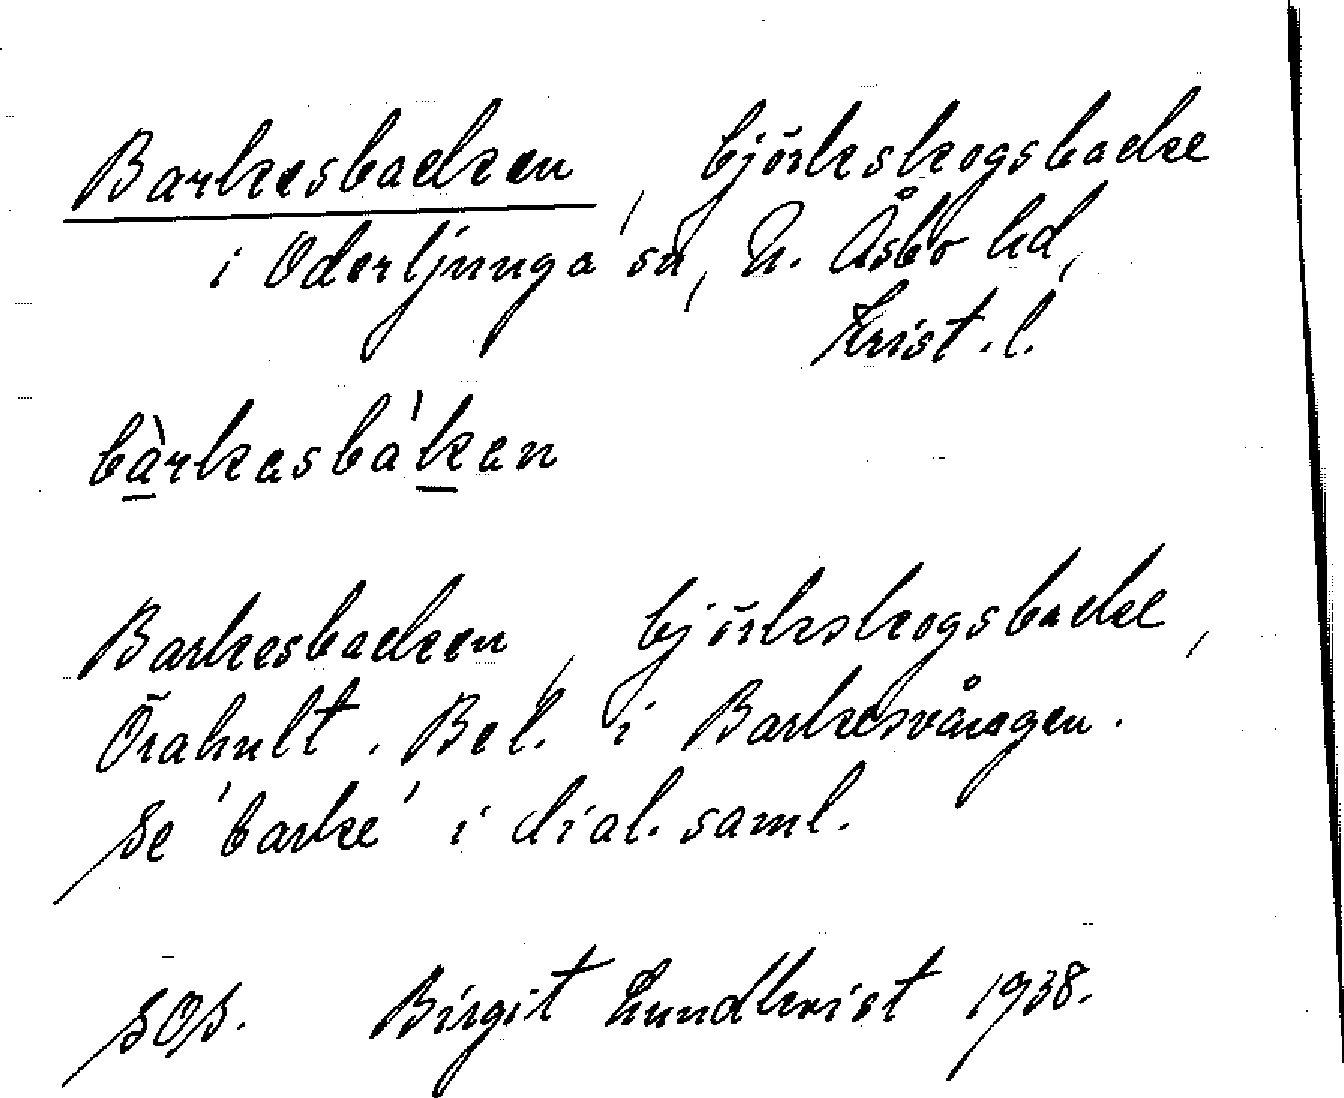 Barkesbacken, björkskogsbacke
i Oderljunga sn, N. Åsbo hd,
Krist. l.
bàrkesbá'ken
Barkesbacken, björkskogsbacke,
Örahult. Bel. i Barkesvången.
Se 'barke' i dial. saml.
SOS. Birgit Lundkvist 1938.